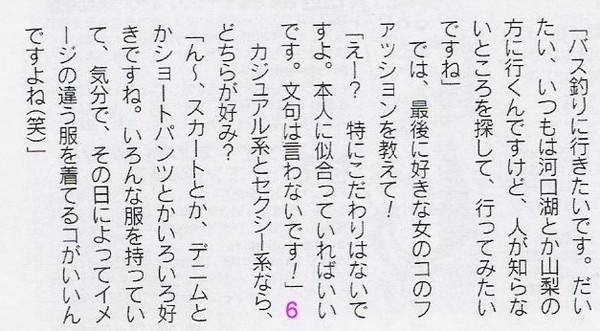 「バス釣りに行きたいです。だい
たい、いつもは河口湖とか山梨の
方に行くんですけど、人が知らな
いところを探して、行ってみたい
ですね」
では、最後に好きな女のコのフ
ァッションを教えて！
「えー？　特にこだわりはないで
すよ。本人に似合っていればいい
です。文句は言わないです！」6
カジュアル系とセクシー系なら、
どちらが好み？
「ん〜、スカートとか、デニムと
かショートパンツとかいろいろ好
きですね。いろんな服を持ってい
て、気分で、その日によってイメ
ージの違う服を着てるコがいいん
ですよね（笑）」